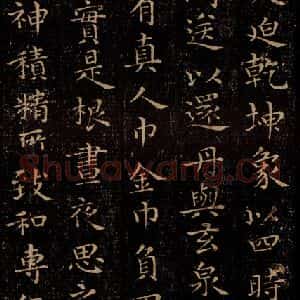 迫乾坤象以四時
送以還丹與玄泉
有真人巾金巾負
實是根晝夜思之
神積精所致和專
Shufawang.cn